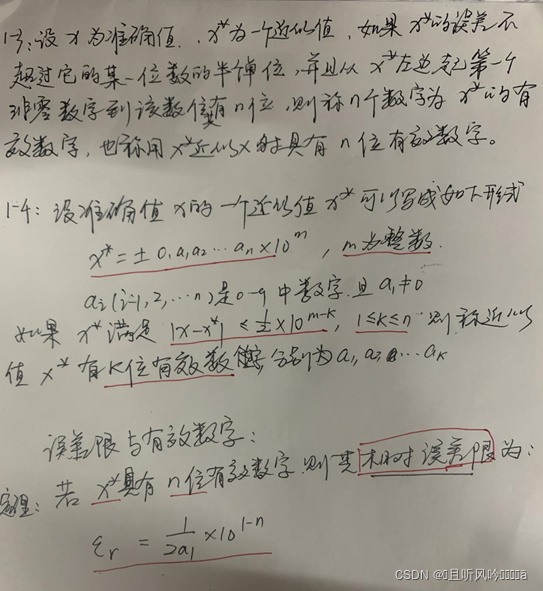 1-3:设 x 为准确值. x* 为一个近似值,如果 x* 的误差不
超过它的某一位数的半个单位,并且从 x* 左边起第一个
非零数字到该数位共有 n 位,则称 n 个数字为 x* 的有
效数字,也称用 x* 近似 x 时具有 n 位有效数字。
1-4:设准确值 x 的一个近似值 x* 可以写成如下形式
x* = ± 0.a₁a₂…aₙ×10^m , m 为整数.
aᵢ(i=1,2,…n)是0-9中数字.且 a₁≠0
如果 x* 满足 |x-x*| ≤ 1/2×10^(m-k), 1≤k≤n 则称近似
值 x* 有 k 位有效数字,分别为 a₁,a₂…aₖ
误差限与有效数字:
定理:若 x* 具有 n 位有效数字.则其相对误差限为:
εr = 1/(2a₁) ×10^(1-n)
CSDN @且听风吟